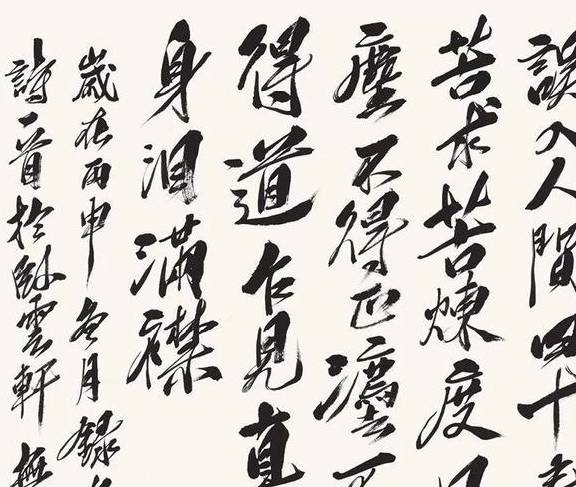 誤入人間四十
苦求苦煉度
塵不得正灋不
得道乍見真
身泪滿襟
歲在丙申冬月錄
詩一首於臥雲軒無